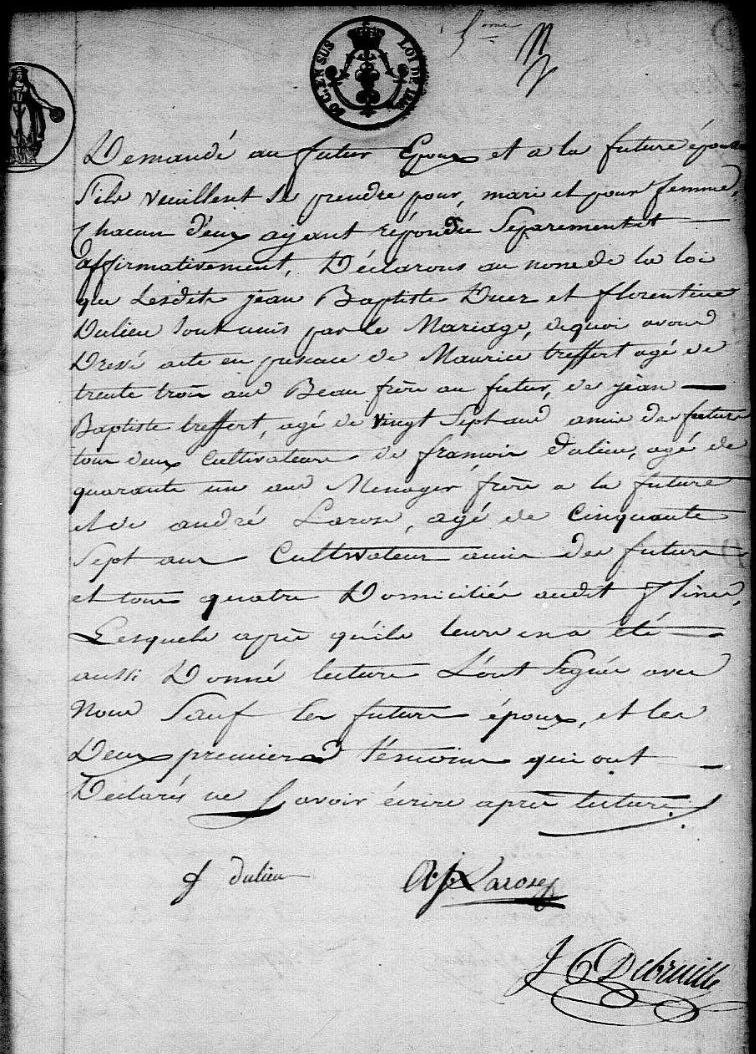 50 C. EN SUS LOI DE
5eme
Demandé au futur Epoux et a la future épouse
S'ils veuillent se prendre pour mari et pour femme,
Chacun d'eux ayant répondu Séparement et
affirmativement, Déclarons au nom de la loi
que Lesdits jean Baptiste Duez et florentine
Dulieu Sont unis par le Mariage, de quoi avons
Dressé acte en presence de Maurice treffert agé de
trente trois ans Beau frère au futur, de jean
Baptiste treffert, agé de vingt Sept ans amis des futurs
tous deux Cultivateurs de francois Dulieu, agé de
quarante un ans Menager, frère a la future
et de andré Larose, agé de Cinquante
Sept ans Cultivateur amis des futurs
et tous quatre Domiciliés audit flines,
Lesquels après qu'ils leurs en a été
aussi Donné lecture L'ont Signés avec
Nous Sauf les futurs époux, et les
Deux premiers témoins qui ont
Déclarés ne Savoir écrire après lecture.
f Dulieu
A j Larose